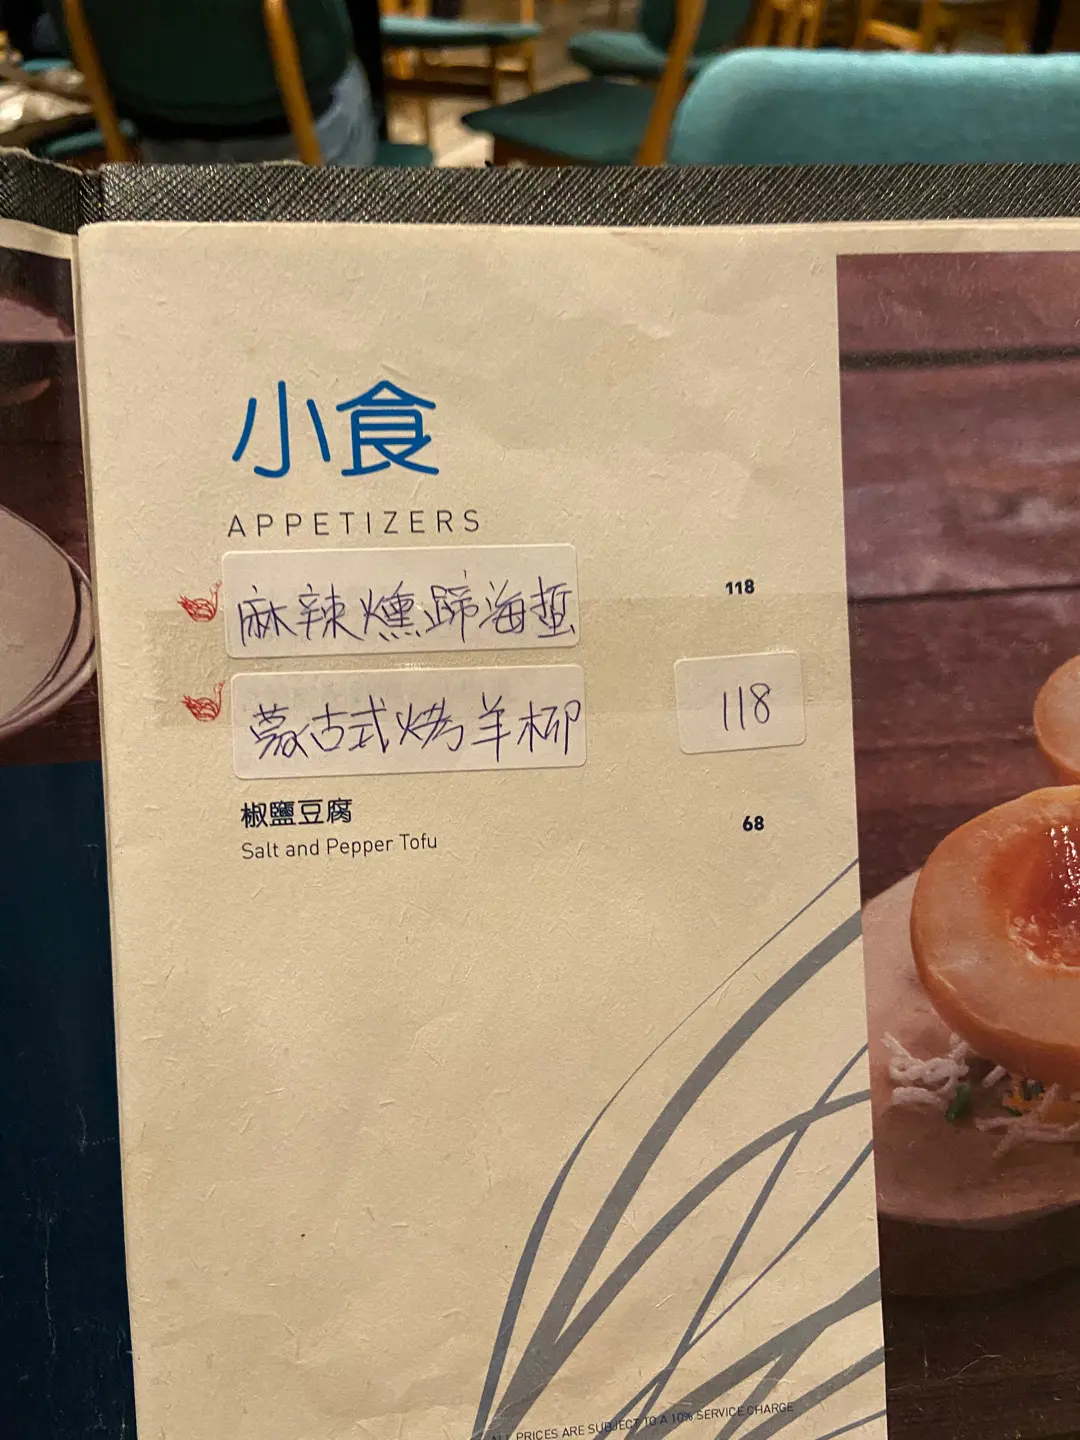 小食
APPETIZERS
麻辣燻蹄海蜇 118
蒙古式烤羊柳 118
椒鹽豆腐 68
Salt and Pepper Tofu
ALL PRICES ARE SUBJECT TO A 10% SERVICE CHARGE